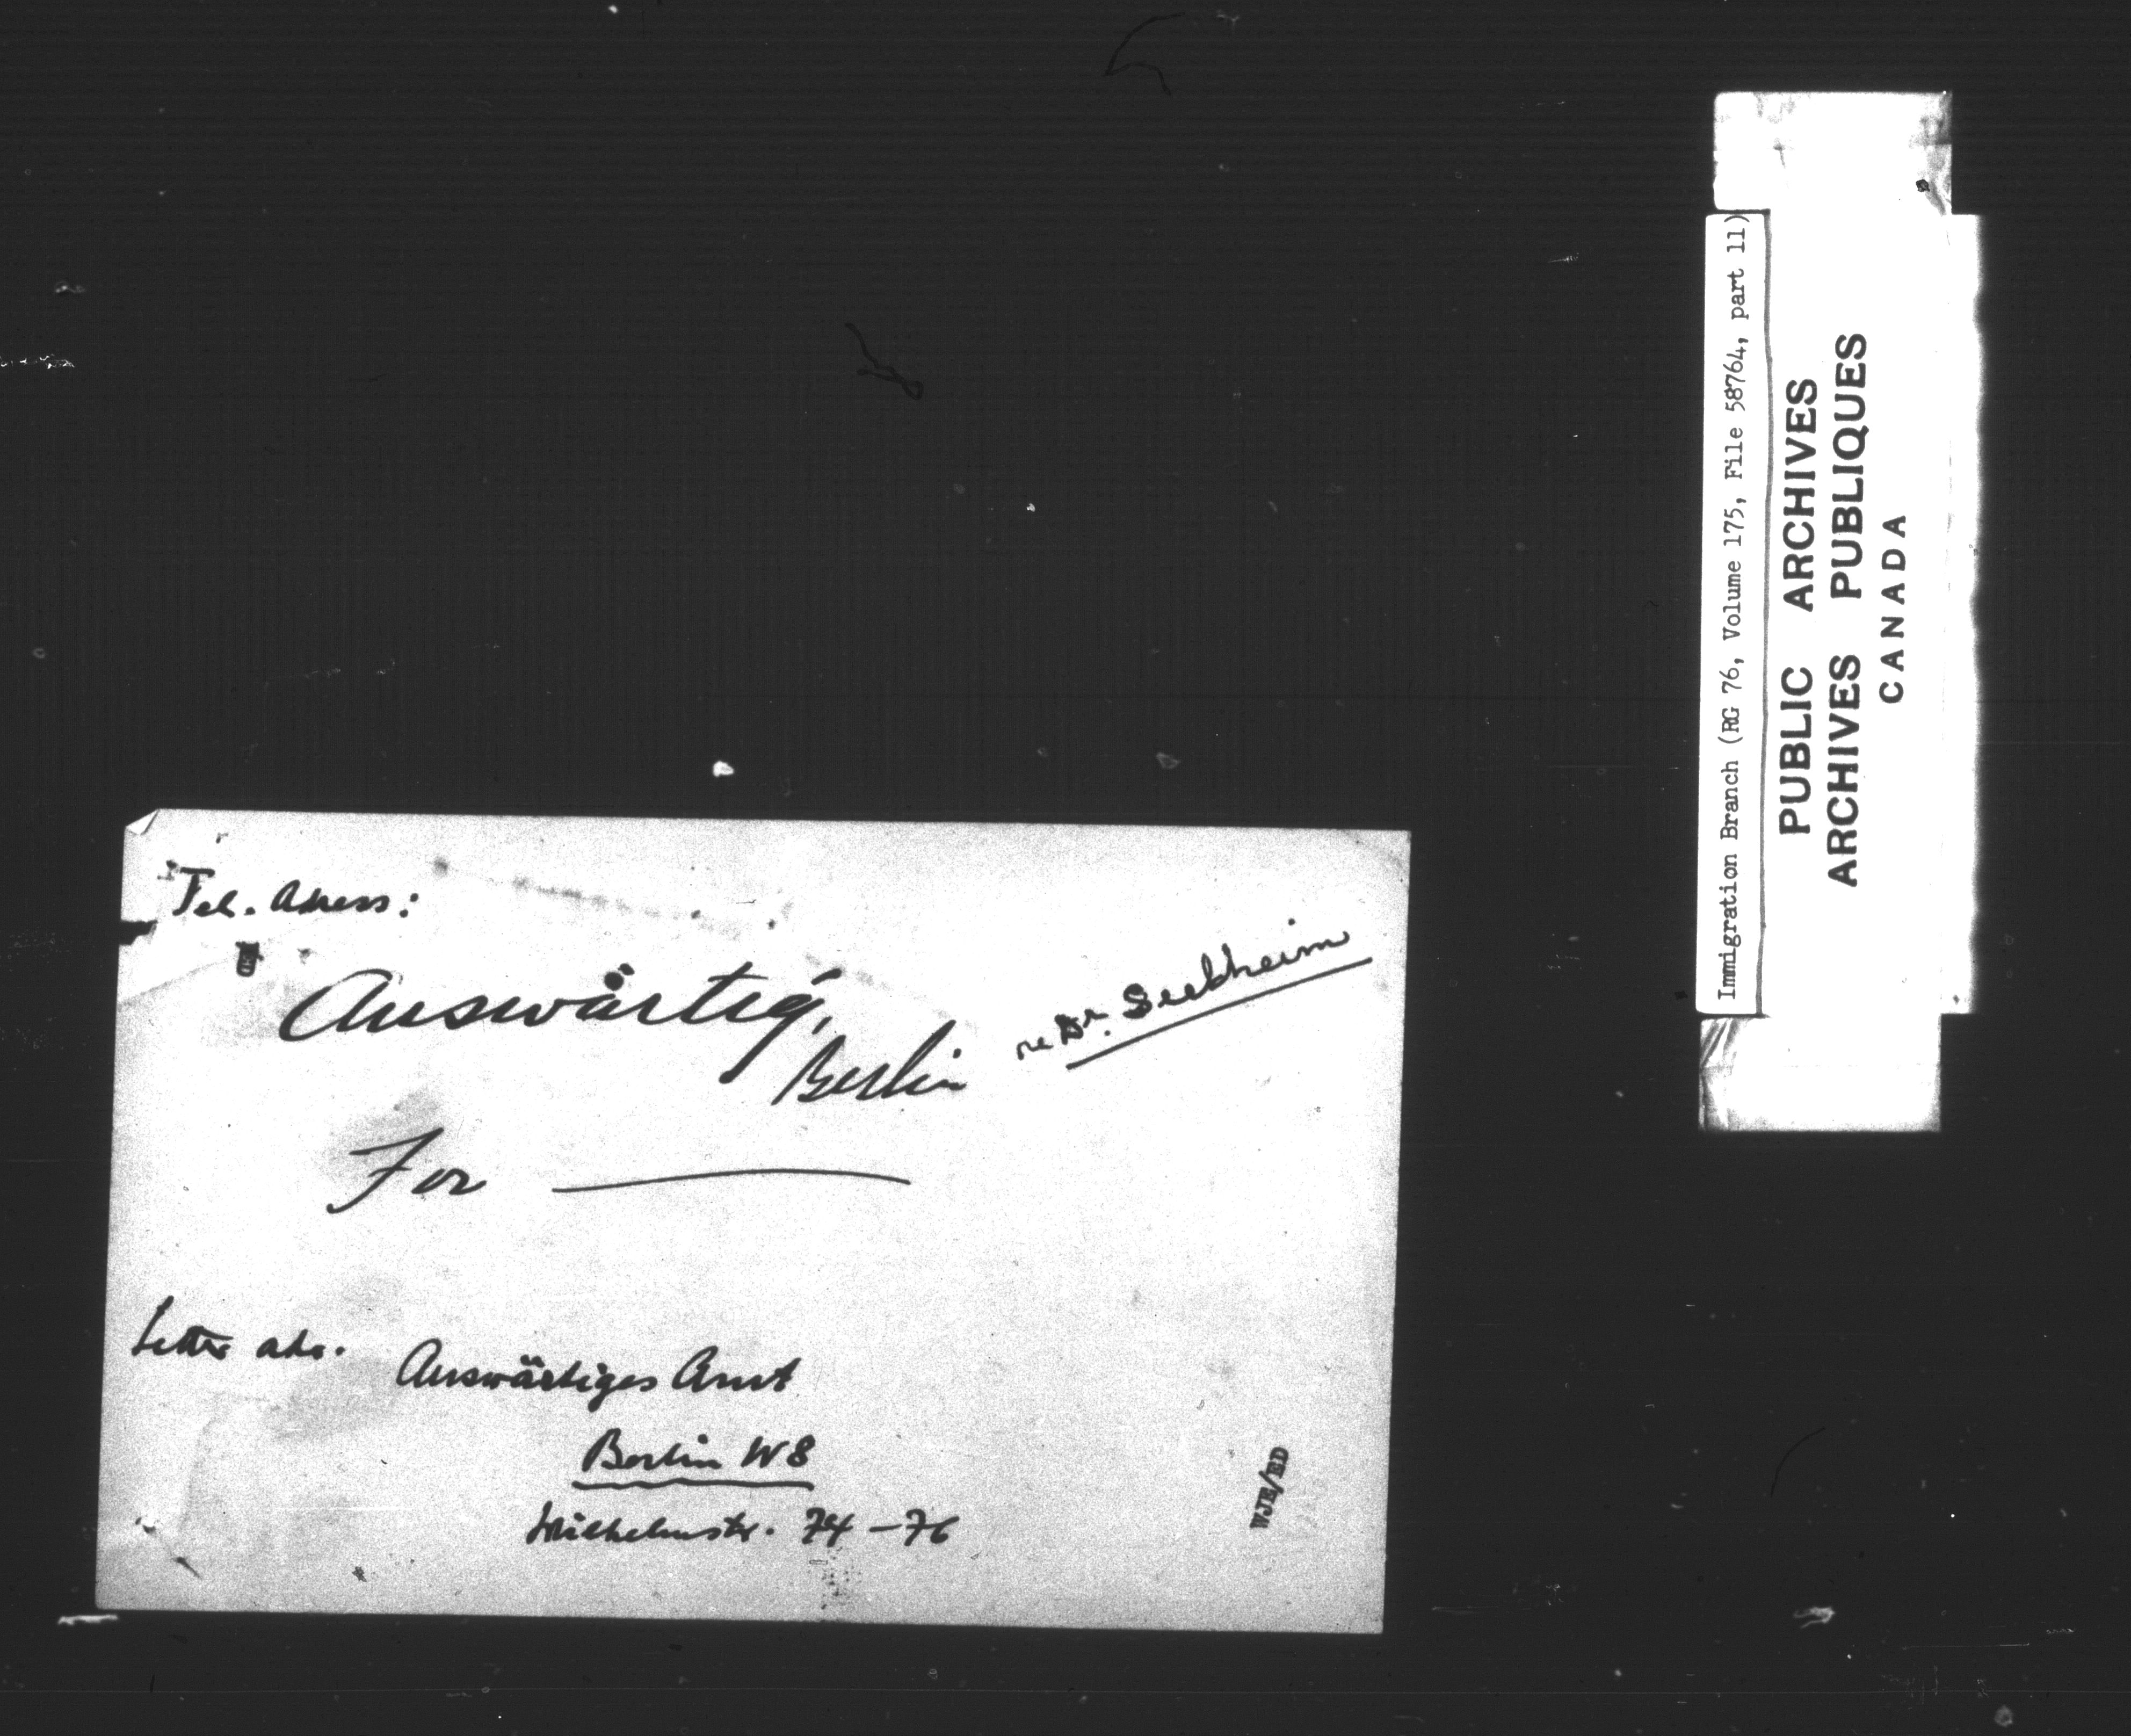 Tel. Adress:
Auswärtig,
Berlin
re Dr. Seelheim
For
Letter adr.
Auswärtiges Amt
Berlin W8
Wilhelmstr. 74-76
WJE/ED
Immigration Branch (RG 76, Volume 175, File 58764, part 11)
PUBLIC ARCHIVES
ARCHIVES PUBLIQUES
CANADA